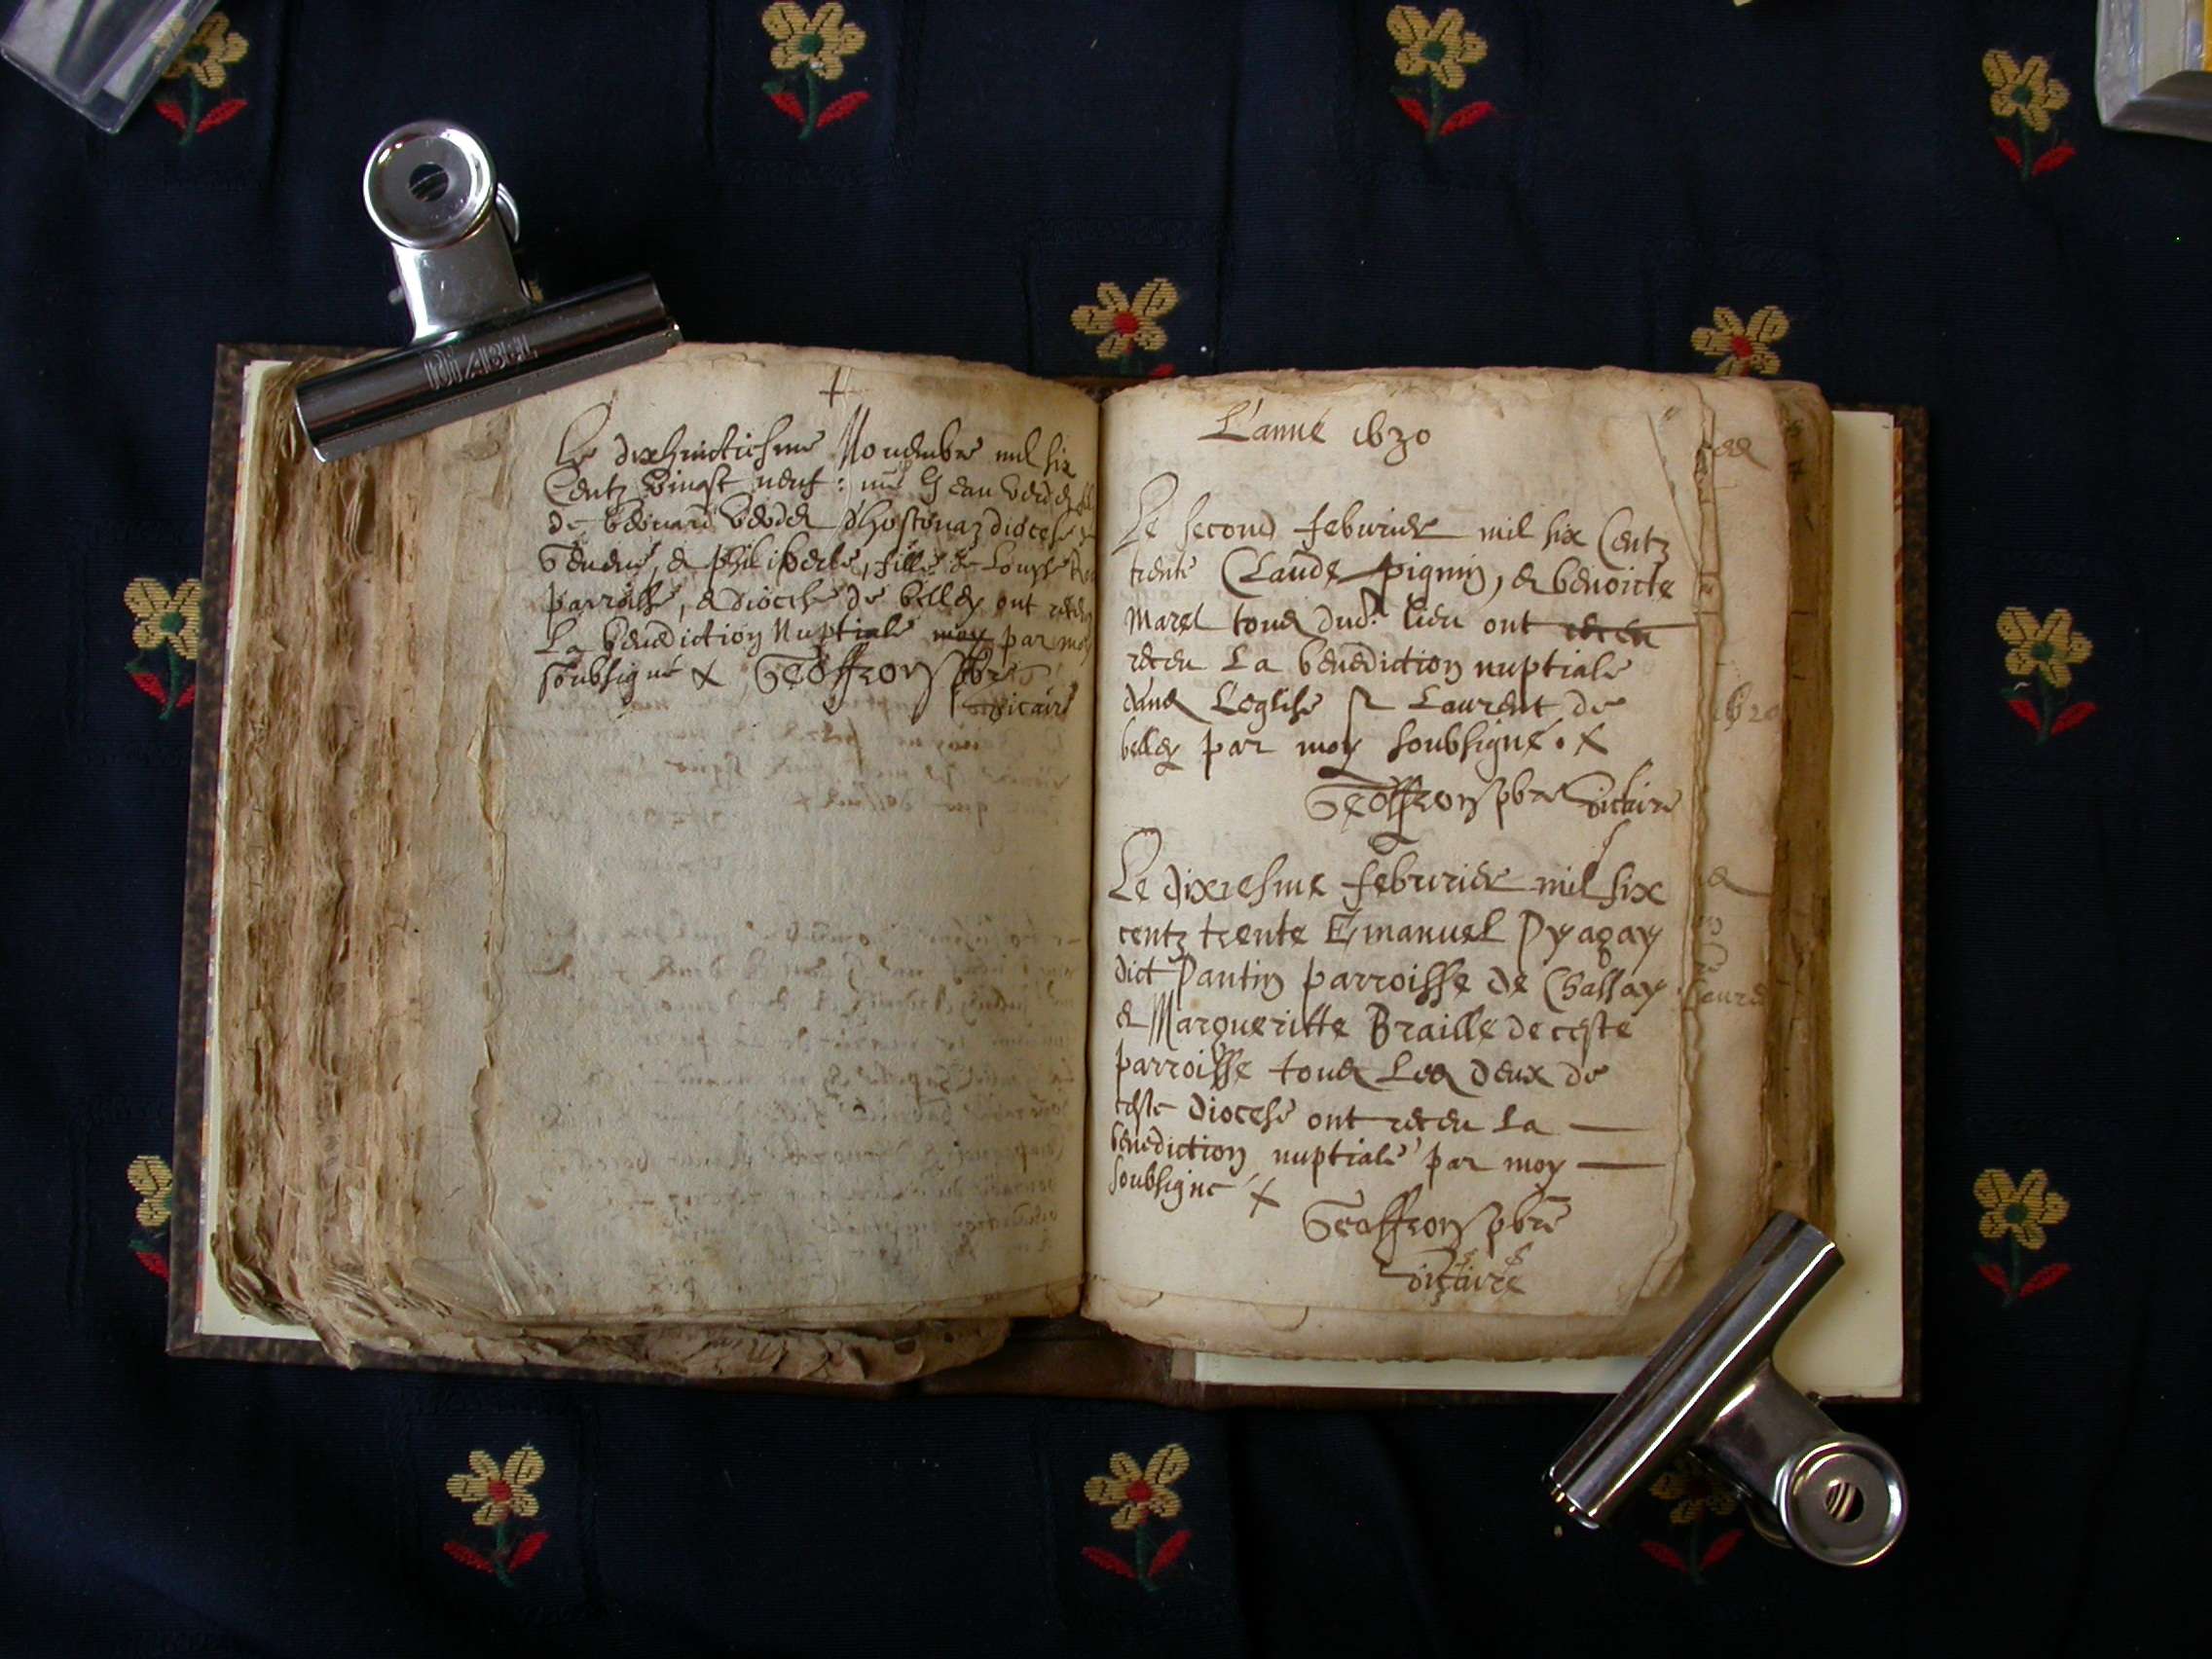 Le dixhuictiesme Novembre mil six
Centz vingt neuf : Jean
de d'hostonaz diocese
Geneve, & philiberte, fille de
parroisse, & diocese de belley ont
La benediction Nuptiale par moy
soubsigné Geoffroy pbre
vicaire
L'anné 1630
Le second febvrier mil six Centz
trente Claude pignin, & benoicte
Marel tous dud. lieu ont receu
receu La benediction nuptiale
dans L'eglise St Laurent de
belley par moy soubsigné.
Geoffroy pbre victaire
Le dixiesme febvrier mil six
centz trente Emanuel Pyagay
dict Pantin parroisse de Chassay
& Margueritte Braille de ceste
parroisse tous Les deux de
ceste diocese ont receu La
benediction nuptiale par moy
soubsigné
Geoffroy pbre
victaire
DIABEL